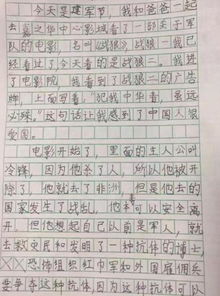 今天是建军节，我和爸爸一起
去 之华中心影城看了一部关于军
队的电影，名叫《战狼》战狼一我已
经看过了今天看的是战狼二。我进
了电影院 我看到了战狼二的广告
牌，上面写着，"犯我中华者，虽远
必殊。"这句话让我感到了中国人很
爱国。
电影开始了，里面的主人公叫
冷锋，因为他杀了人，所以他被开
除了，他就去了非洲，但是他去的
国家发生了战乱，他本可以安全离
开，但他想起自己以前是军人，就
去救灾民和发明了一种抗体的博士
恐怖组织红巾军和外国雇佣兵
要争夺这种抗体因为这种抗体可以